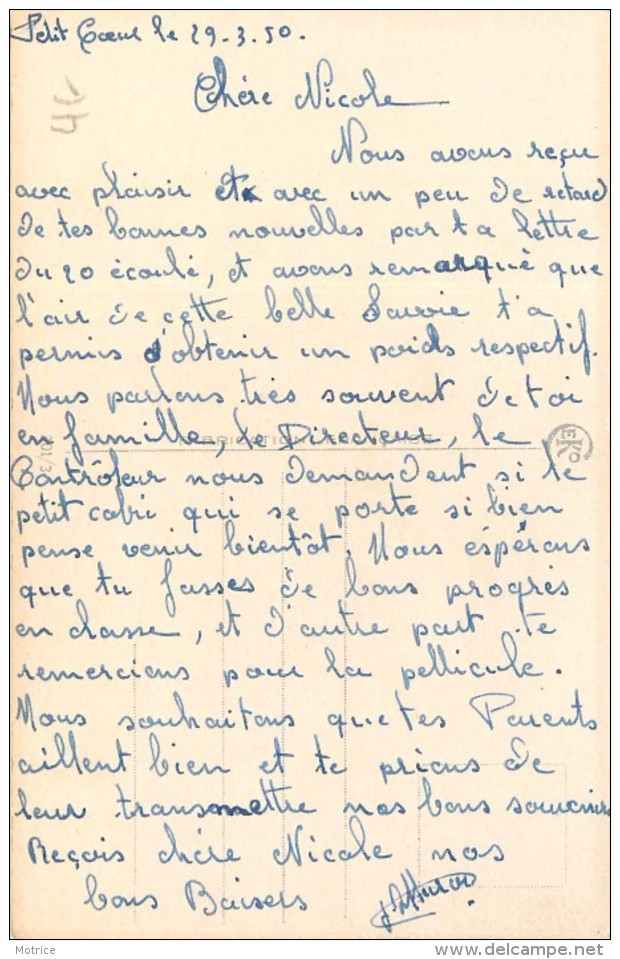 Petit Coeur le 29-3-50.
Chère Nicole
Nous avons reçu
avec plaisir et avec un peu de retard
de tes bonnes nouvelles par ta lettre
du 20 écoulé, et avons remarqué que
l'air de cette belle Savoie t'a
permis d'obtenir un poids respectif.
Nous parlons très souvent de toi
en famille, le Directeur, le
Contrôleur nous demandent si le
petit cabri qui se porte si bien
pense venir bientôt. Nous espérons
que tu fasses de bons progrès
en classe, et d'autre part te
remercions pour la pellicule.
Nous souhaitons que tes Parents
aillent bien et te prions de
leur transmettre nos bons souvenirs
Reçois chère Nicole nos
bons Baisers
Motrice
delcampe.net